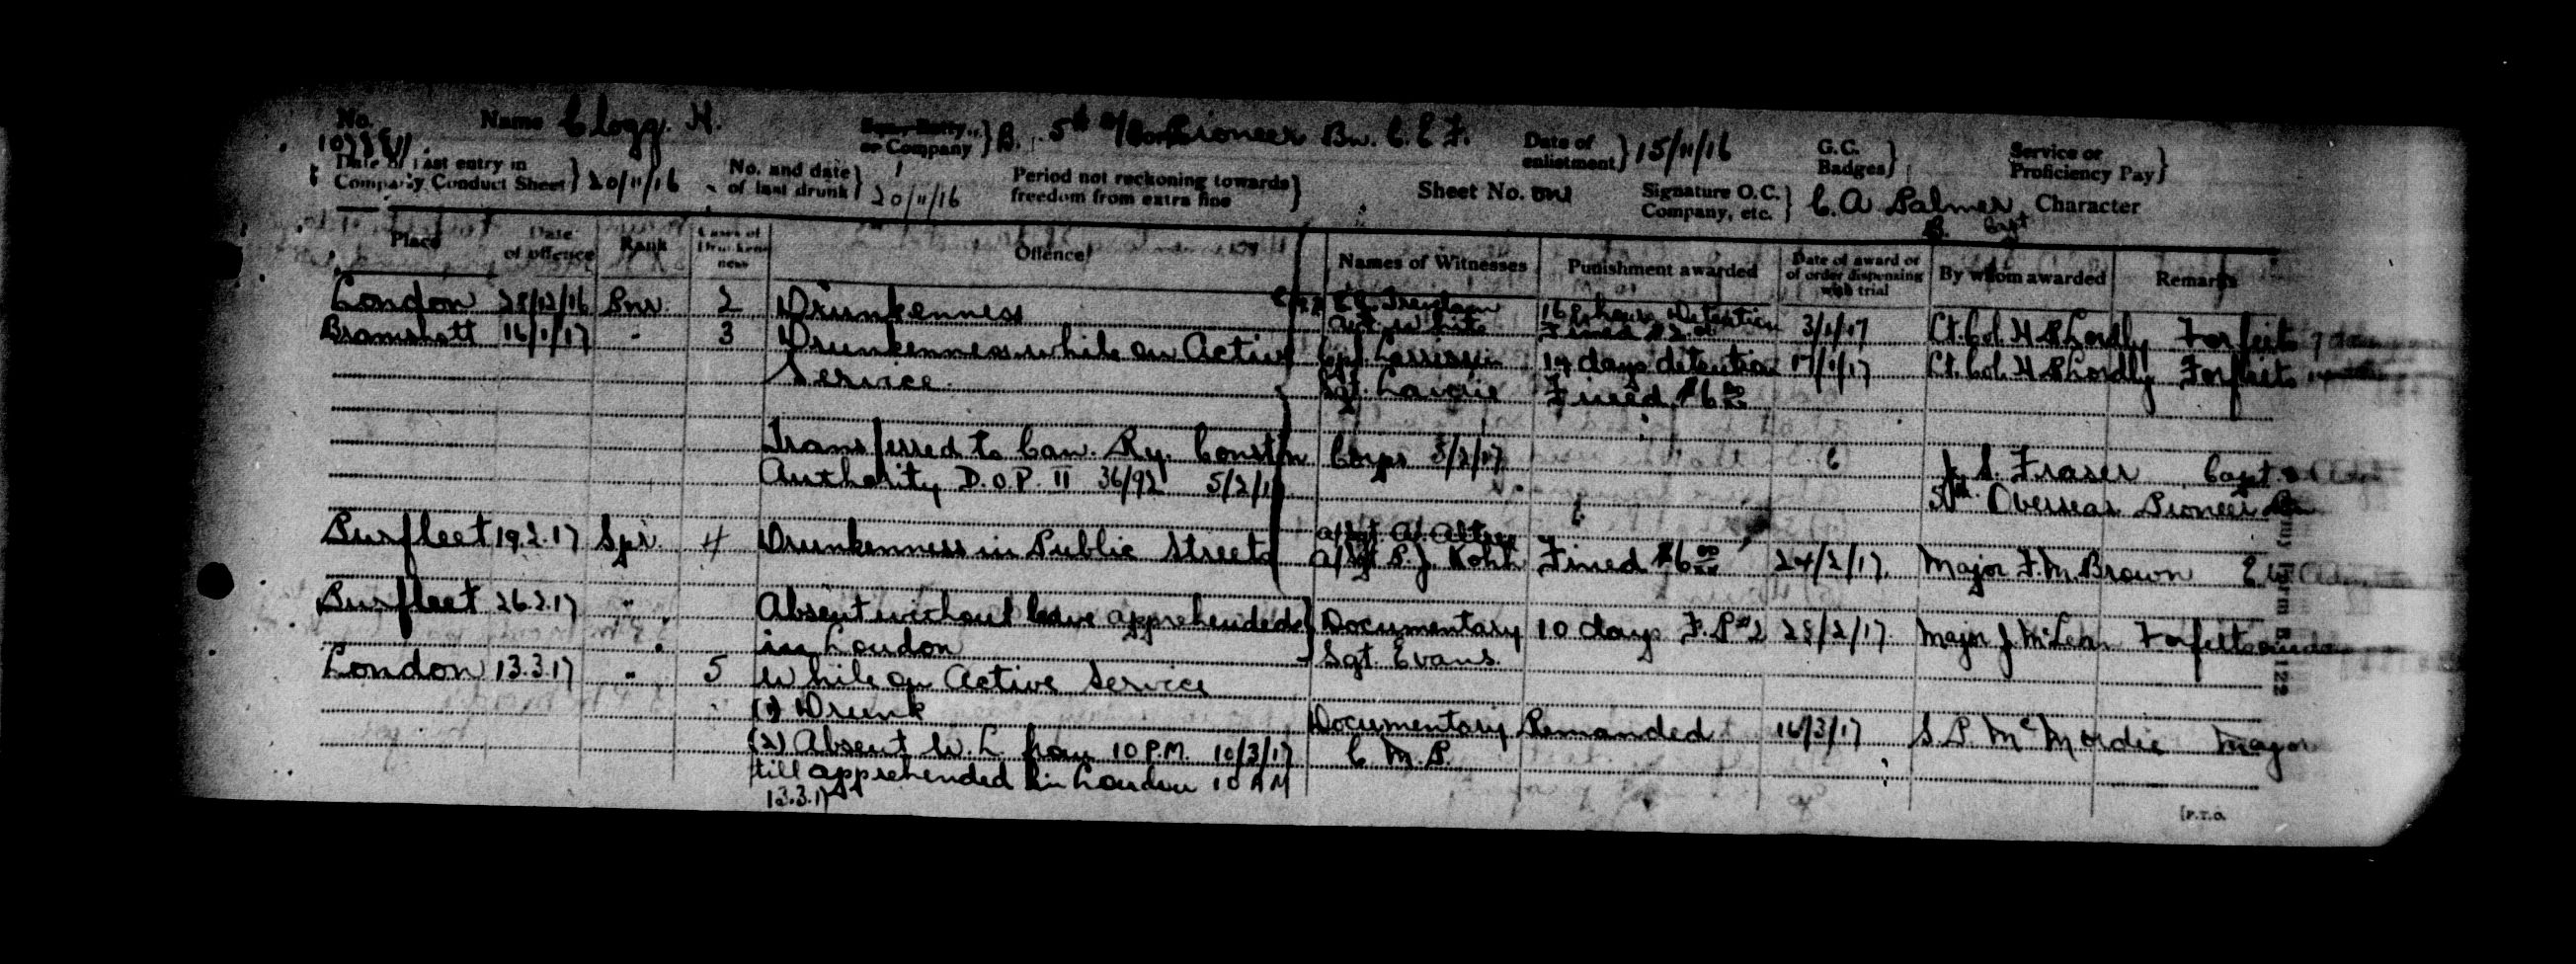 No. Name Clogg. H. or Company } B. 5th Pioneer Bn. C.E.F. Date of enlistment } 15/11/16 G.C. Badges } Service or Proficiency Pay }
Date of last entry in Company Conduct Sheet } 20/11/16 No. and date of last drunk } 1 20/11/16 Period not reckoning towards freedom from extra fine } Sheet No. one Signature O.C. Company, etc. } C. A. Palmer Capt Character
B.
Place Date of offence Rank Cases of Drunkenness Offence Names of Witnesses Punishment awarded Date of award or of order dispensing with trial By whom awarded Remarks
London 28/12/16 Pnr. 2 Drunkenness 168 hours Detention 3/1/17 Lt. Col. H. Lordly Forfeits
Fined
Bramshott 16/1/17 " 3 Drunkenness while on Active Cpl. 14 days detention 17/1/17 Lt. Col. H. Lordly Forfeits
Service. Sgt. Lavoie Fined $6 00
Transferred to Can. Ry. Constn Corps 5/2/17 Fraser Capt.
Authority D.O.P. II 36/92 5/2/17 5th Overseas Pioneer Bn
Purfleet 19.2.17 Spr. 4 Drunkenness in Public Streets a/Sgt. Fined $6 00 24/2/17. Major F. M. Brown
Purfleet 26.2.17 " Absent without leave apprehended } Documentary 10 days F.P. 28/2/17. Major J. McLean Forfeits
in London Sgt. Evans.
London 13.3.17 " 5 While on Active Service
(1) Drunk
(2) Absent W. L. from 10 P.M. 10/3/17 Documentary Remanded 16/3/17 S P McMordie Major
till apprehended in London 10 AM C. M. P.
13.3.17
[P.T.O.